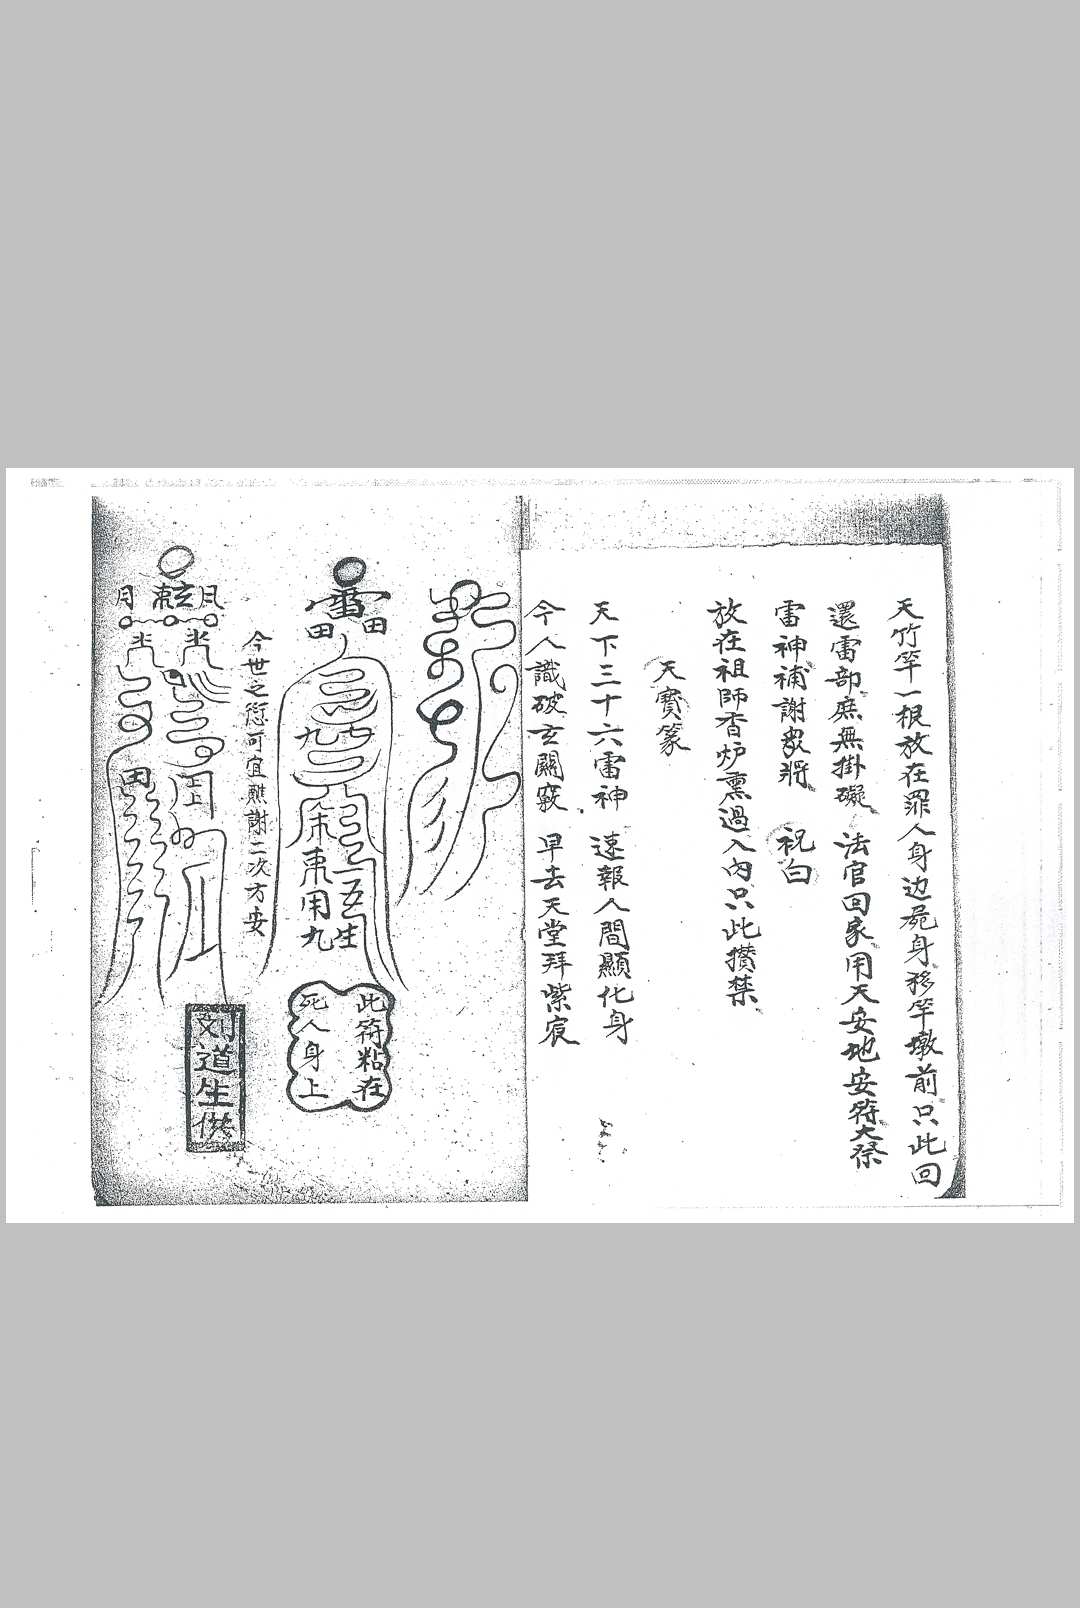 天竹竿一根放在罪人身边屍身移竿墩前只此回
還雷部庶無掛礙 法官回家用天安地安符大祭
雷神補謝眾將 祝白
放在祖師香炉熏過入內只此攢禁
天寶篆
天下三十六雷神 速報人間顯化身
今人識破玄關竅 早去天堂拜紫宸
雷
田 田
九
未來用九
一五生
此符粘在
死人身上
今世之愆可宜醮謝二次方安
月 玄 月
田
刘道生供